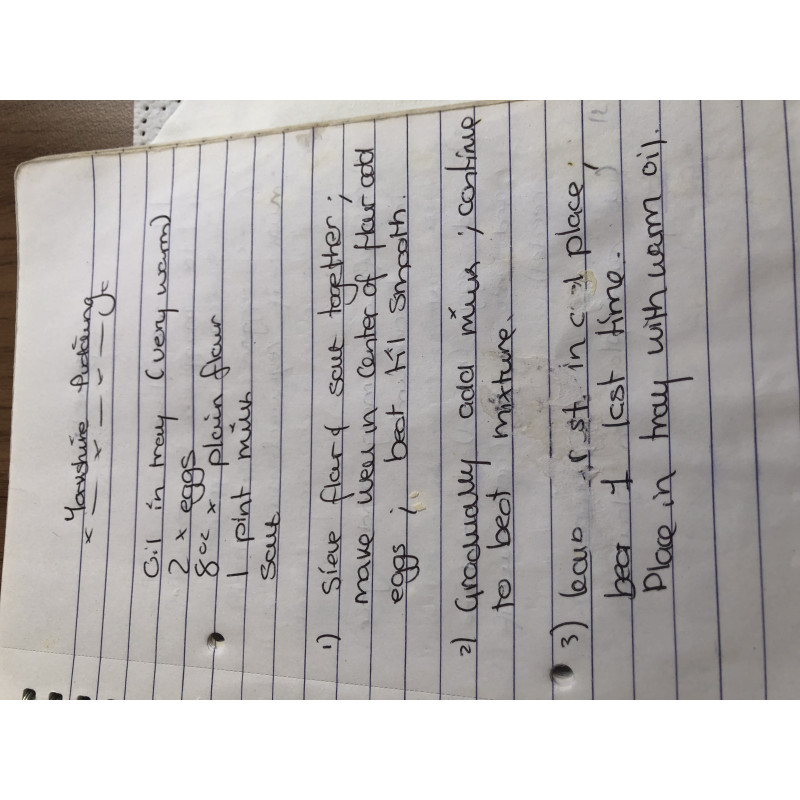 Yorkshire Pudding
Oil in tray (very warm)
2 x eggs
8oz x plain flour
1 pint milk
Salt
1) Sieve flour & salt together;
make well in center of flour add
eggs; beat til smooth.
2) Gradually add milk; continue
to beat mixture.
3) leave in cool place;
beat 1 last time.
Place in tray with warm oil.